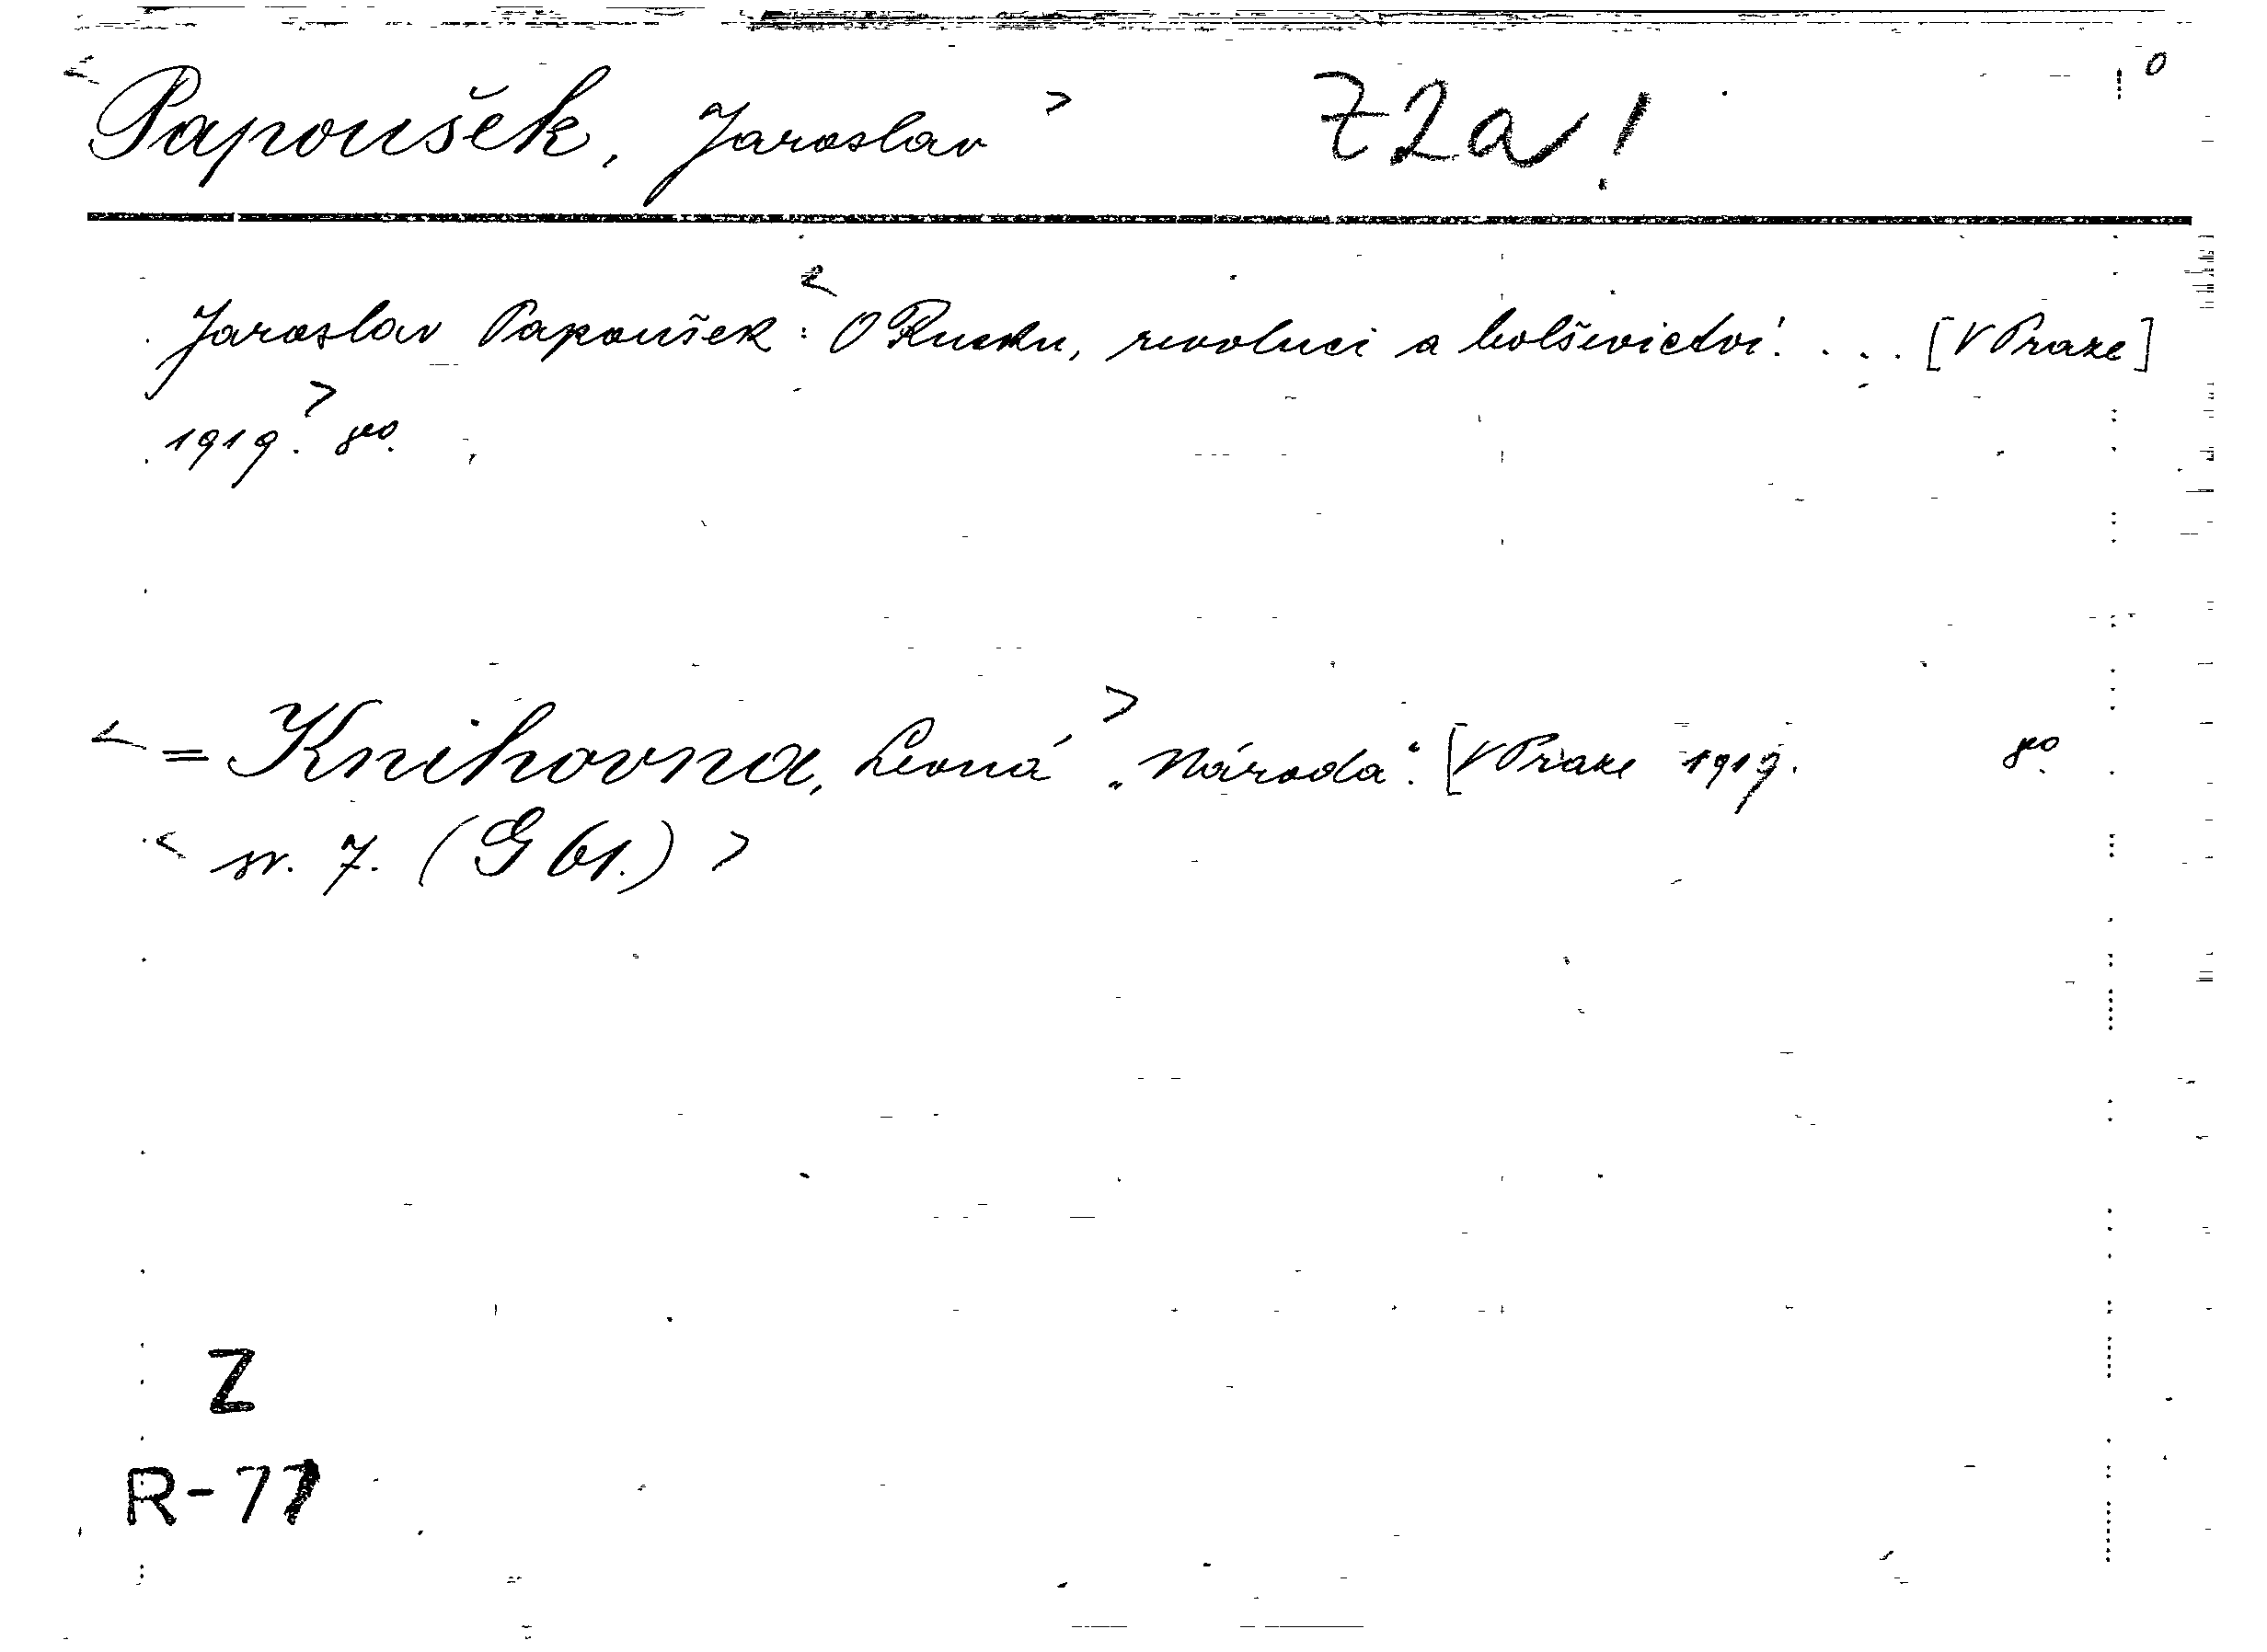 <Papoušek, Jaroslav> Z2a!
Jaroslav Papoušek: <O Rusku, revoluci a bolševictví. ... [V Praze]
1919.> 8º.
<= Knihovna, Levná> „Národa“. [V Praze 1919. 8º.
< sv. 7. (G 61.) >
Z
R-77